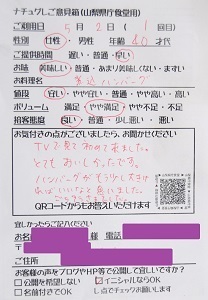 ナチュグしご意見箱(山梨県庁食堂用)
ご利用日 5月2日(1回目)
性別 女性・男性 年齢 40才代
ご提供時間 遅い・普通・早い
お味 美味しい・普通・あまり美味しくない・まずい
お料理名 煮込ハンバーグ
値段 安い・やや安い・普通・やや高い・高い
ボリューム 満足・やや満足・やや不足・不足
接客態度 良い・普通・悪い
お気付きの点がございましたら、お聞かせください
TVで見て初めて来ました。
とてもおいしかったです。
ハンバーグがもう少し大きければいいなと思いました。
QRコードからもお答えいただけます
宜しかったらご記入ください
お名 様 電話
〒
ご住所
お客様の声をブログやHP等で公開して宜しいですか?
□公開を希望しない イニシャルならOK
□名前付きでOK し点でチェックお願いします